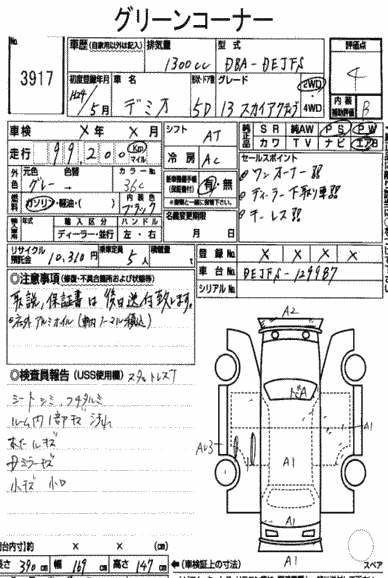 グリーンコーナー
No. 3917
車歴 (自家用以外は記入) 排気量 1300cc 型式 DBA-DEJFS 評価点 4
初度登録年月 H24年5月 車名 デミオ 形状・ドア数 5D グレード 13 スカイアクティブ 2WD 4WD 内装補助評価 B
車検 ×年 ×月 シフト AT 純正装備品 SR 純AW PS PW
走行 99,200 Km マイル 冷房 AC カワ TV ナビ エアB
外色 元色 グレー→ 色替 カラーNo. 36C セールスポイント
燃料 ガソリン・軽油・( ) 内装色 ブラック 新車整備手帳(保証書付) 有・無
ワンオーナー!!
ディーラー下取り車!!
キーレス!!
輸入車 年式 輸入区分 ディーラー・並行 ハンドル 左・右 名義変更期限 月 日
リサイクル預託金 10,310円 乗車定員 5人 積載量 t 登録No. × × × ×
車台No. DEJFS-129987
シリアルNo.
◎注意事項(修復・不具合箇所および状態等)
取説、保証書は後日送付致します。
社外アルミホイル(車内ノーマル積込)
◎検査員報告(USS使用欄) スタットレス7
シートシミ、フタダルミ
ルーム内1部キズ 汚れ
ホイールキズ
ミラーキズ
小キズ 小凹
A2
A1
A1
A1
A1
A1
スペア
荷台内寸)約 × × (cm)
長さ 390cm 幅 169 高さ 147cm ←(車検証上の寸法)